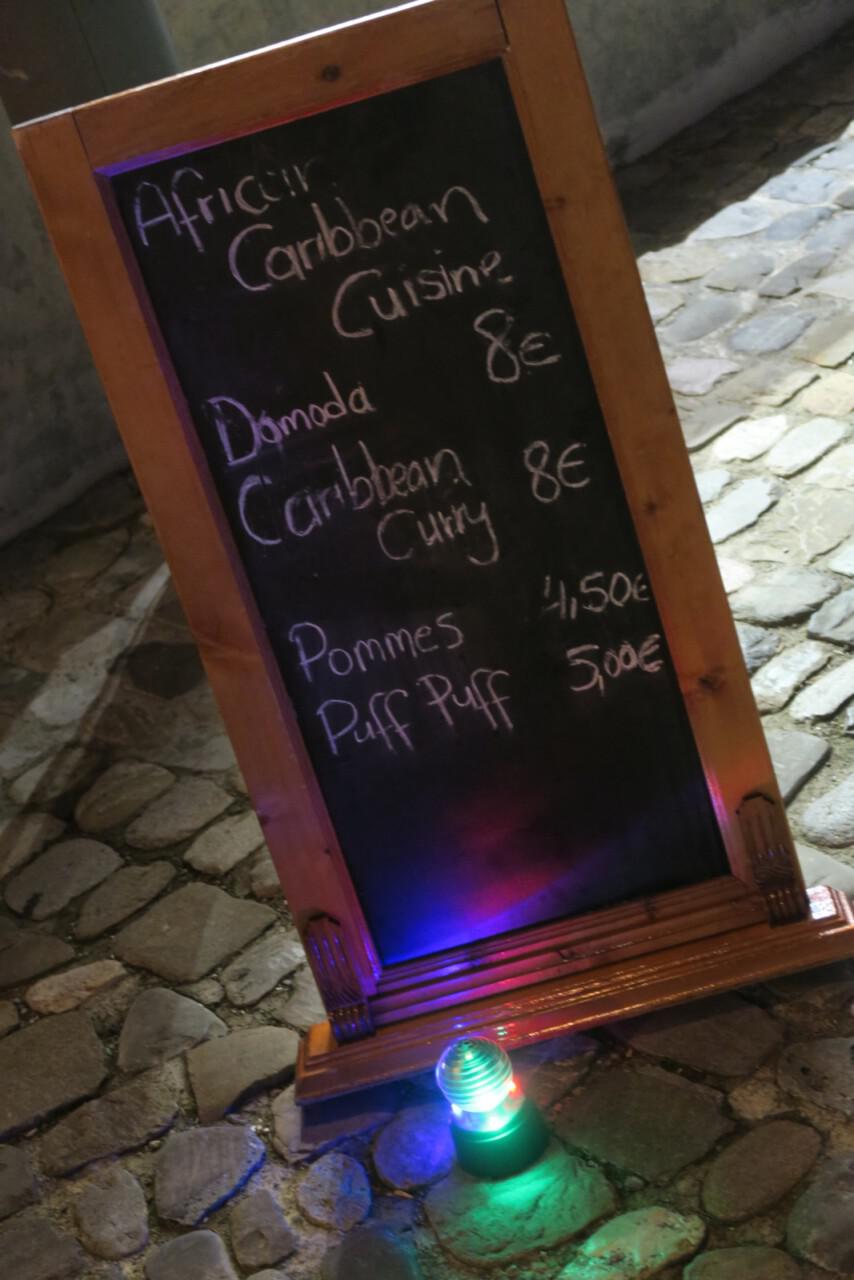 African
Caribbean
Cuisine
8€
Domoda
Caribbean 8€
Curry
Pommes 4,50€
Puff Puff 5,00€